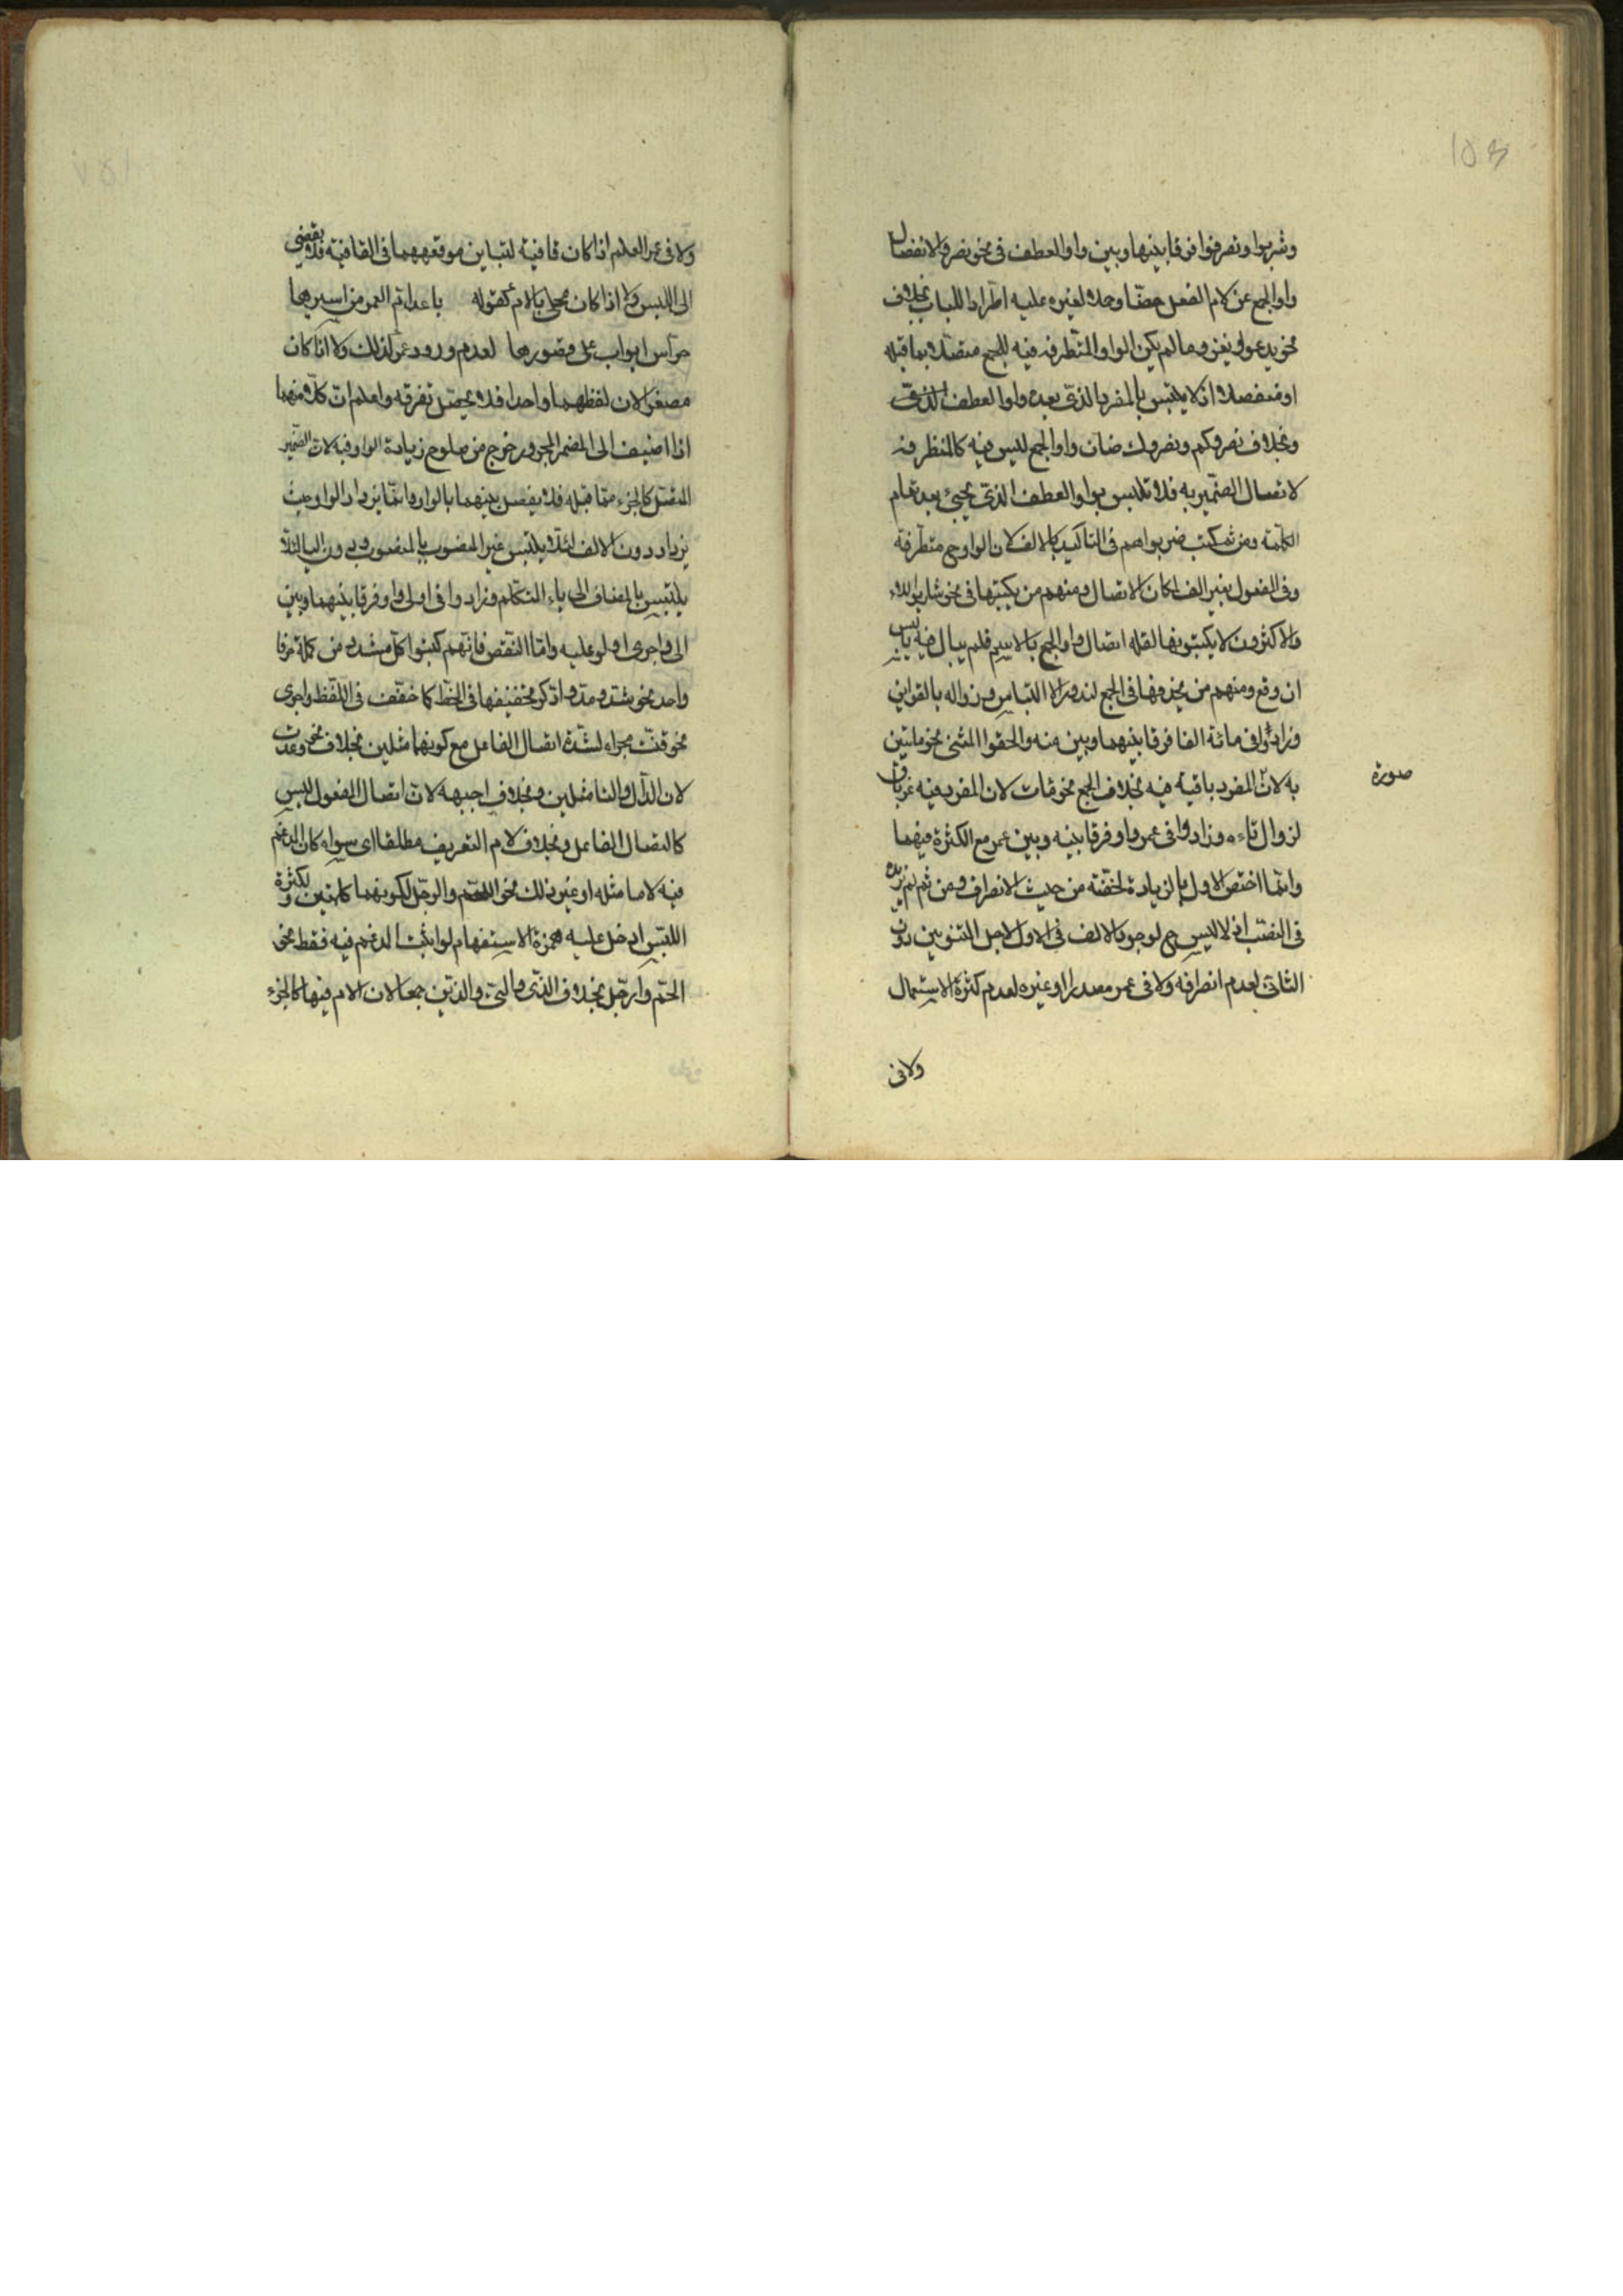 وشربوا ونصرفوا فرقا بينها وبين واو العطف في نحو نصر والانفصال
واو الجمع عن لام الفعل خطا وحملا لغيره عليه اطرادا للباب بخلاف
نحو يدعو ويغزو ما لم يكن الواو المتطرفه فيه للجمع متصلا بما قبله
او منفصلا اذ لا يلتبس بالمفرد الذي بعده واو العطف
وبخلاف نصروكم ونصروك فان واو الجمع ليس فيه كالمتطرفه
لاتصال الضمير به فلا تلتبس بواو العطف الذي يجيء بعد تمام
الكلمة ومن ثم كتب ضربوا هم في التاكيد بالالف لان الواو ح متطرفة
وفي المفعول بغير الف لمكان الاتصال ومنهم من يكتبها في نحو شاربوا الماء
والاكثرون لا يكتبونها لقلة اتصال واو الجمع بالاسم فلم يبال فيه بالبس
ان وقع ومنهم من يحذفها في الجمع لندور الالتباس وزواله بالقراين
وزادوا في مائة الفا فرقا بينهما وبين منه والحقوا المثنى نحو مايتين
به لان المفرد باقية فيه بخلاف الجمع نحو مئات لان المفرد فيه غير باق
صورة
لزوال تاءه وزادوا في عمر واوا فرقا بينه وبين عمر مع الكثرة فيهما
وانما اختص الاول بالزيادة لخفته من حيث الانصراف ومن ثم لم يزيده
في النصب اذ لا لبس ح لوجود الالف في الاول لاجل التنوين دون
الثاني لعدم انصرافه ولا في عمر مصدرا او غيره لعدم كثرة الاستعمال
ولا في
ولا في عمر العلم اذا كان قافية لتباين موقعهما في القافية فلا يفضي
الى اللبس ولا اذا كان محلى بالام كقوله باعد ام العمر من اسيرها
حراس ابواب على قصورها لعدم ورود عمر كذلك ولا اذا كان
مصغرا لان لفظهما واحدا فلا يحصل تفرقه واعلم ان كلا منهما
اذا اضيف الى المضمر المجرور خرج من صلوح زيادة الواو فيه لان الضمير
المتصل كالجزء مما قبله فلا يفصل بينهما بالواو وانما يزداد الواو حيث
يزداد دون الالف لئلا يلتبس غير المنصوب بالمنصوب ودون اليا لئلا
يلتبس بالمضاف الى ياء المتكلم وزادوا في اولى واوا فرقا بينهما وبين
الى واجرى اولو عليه واما النقص فانهم كتبوا كل مشدد من كلمة حرفا
واحد نحو شد ومد واذكر تخفيفها في الخط كما خفف في اللفظ واجرى
نحو قتت مجراه لشدة اتصال الفاعل مع كونهما مثلين بخلاف نحو وعدت
لان الدال والتا مثلين وبخلاف اجبهه لان اتصال المفعول ليس
كاتصال الفاعل وبخلاف لام التعريف مطلقا اي سواء كان المدغم
فيه لاما مثله او غير ذلك نحو اللحم والرجل لكونهما كلمتين ولكثرة
اللبس ادخل عليه همزة الاستفهام لو اثبت المدغم فيه فقط نحو
الحم وارجل بخلاف الذي والتي والذين جمعا لان الام فيها كالجزء